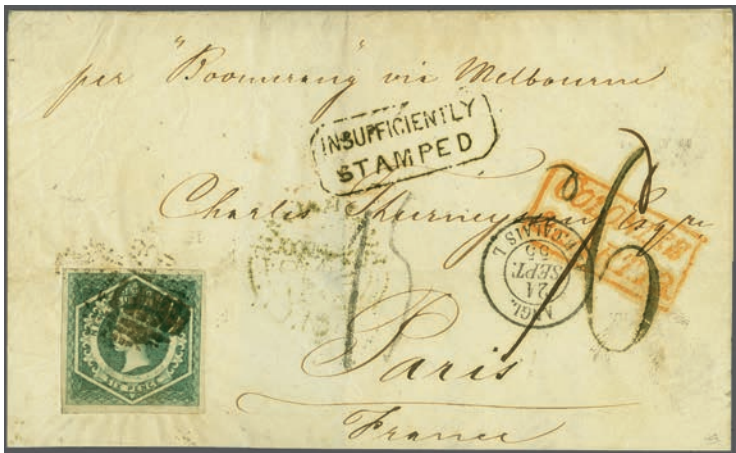 per "Boomerang" via Melbourne
INSUFFICIENTLY
STAMPED
Charles Thurneyssen Esqre
COLONIES
ANGL.
24
SEPT.
55
CALAIS
SIX PENCE
15
Paris
France